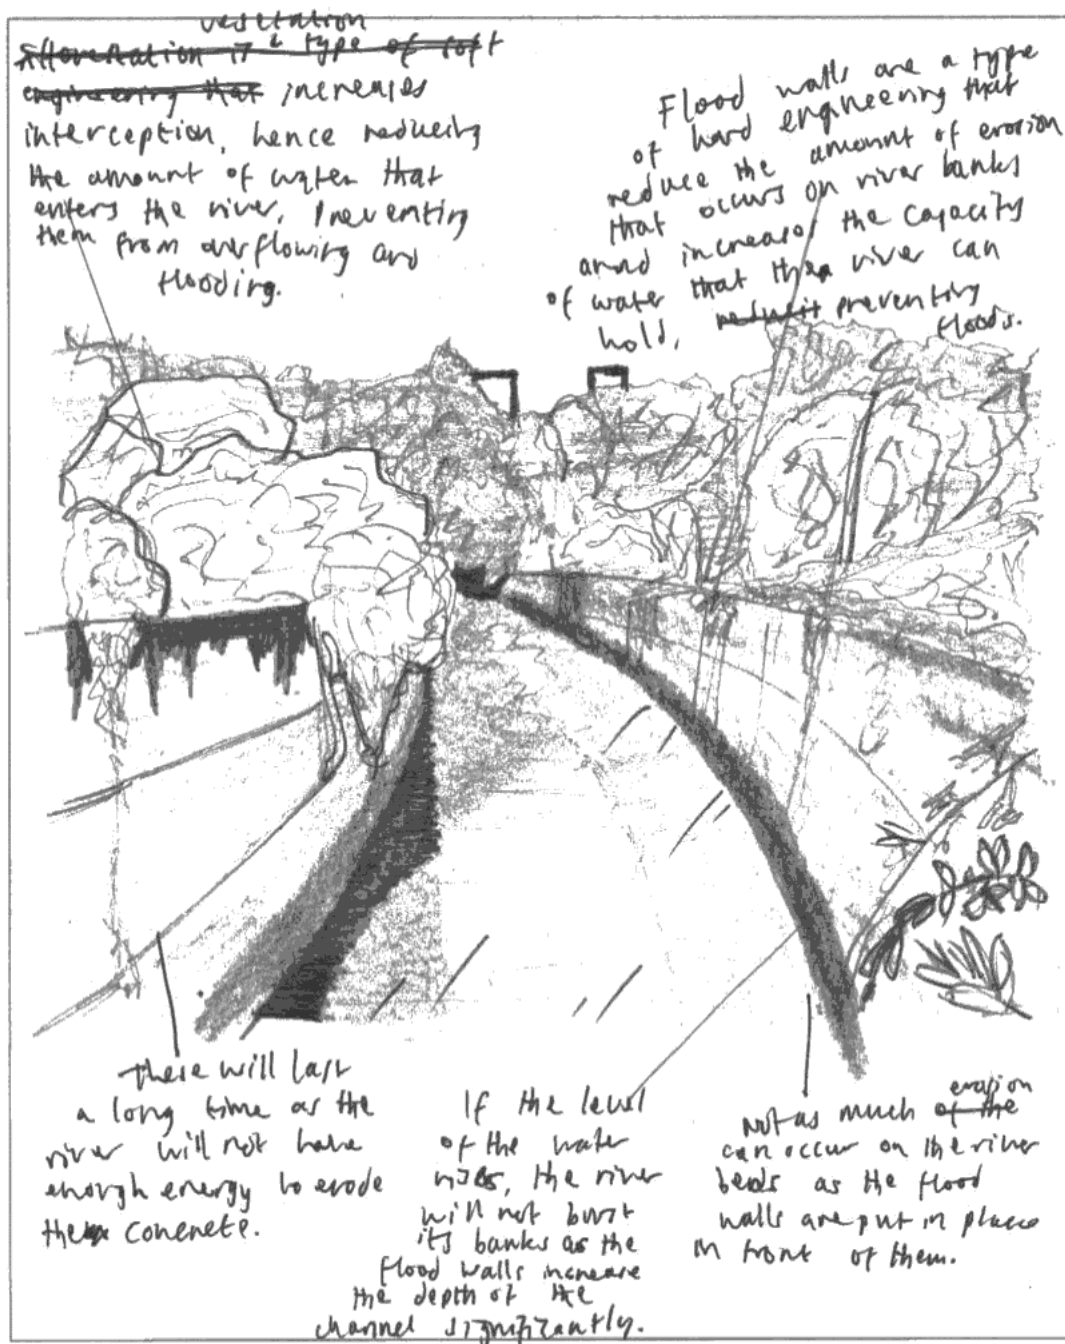 vegetation
Afforestation is a type of soft
engineering that increases
interception, hence reducing
the amount of water that
enters the river, preventing
them from overflowing and
flooding.
Flood walls are a type
of hard engineering that
reduce the amount of erosion
that occurs on river banks
and increases the capacity
of water that the river can
hold, preventing
floods.
these will last
a long time as the
river will not have
enough energy to erode
the concrete.
If the level
of the water
rises, the river
will not burst
its banks as the
flood walls increase
the depth of the
channel significantly.
erosion
not as much of the
can occur on the river
beds as the flood
walls are put in place
in front of them.